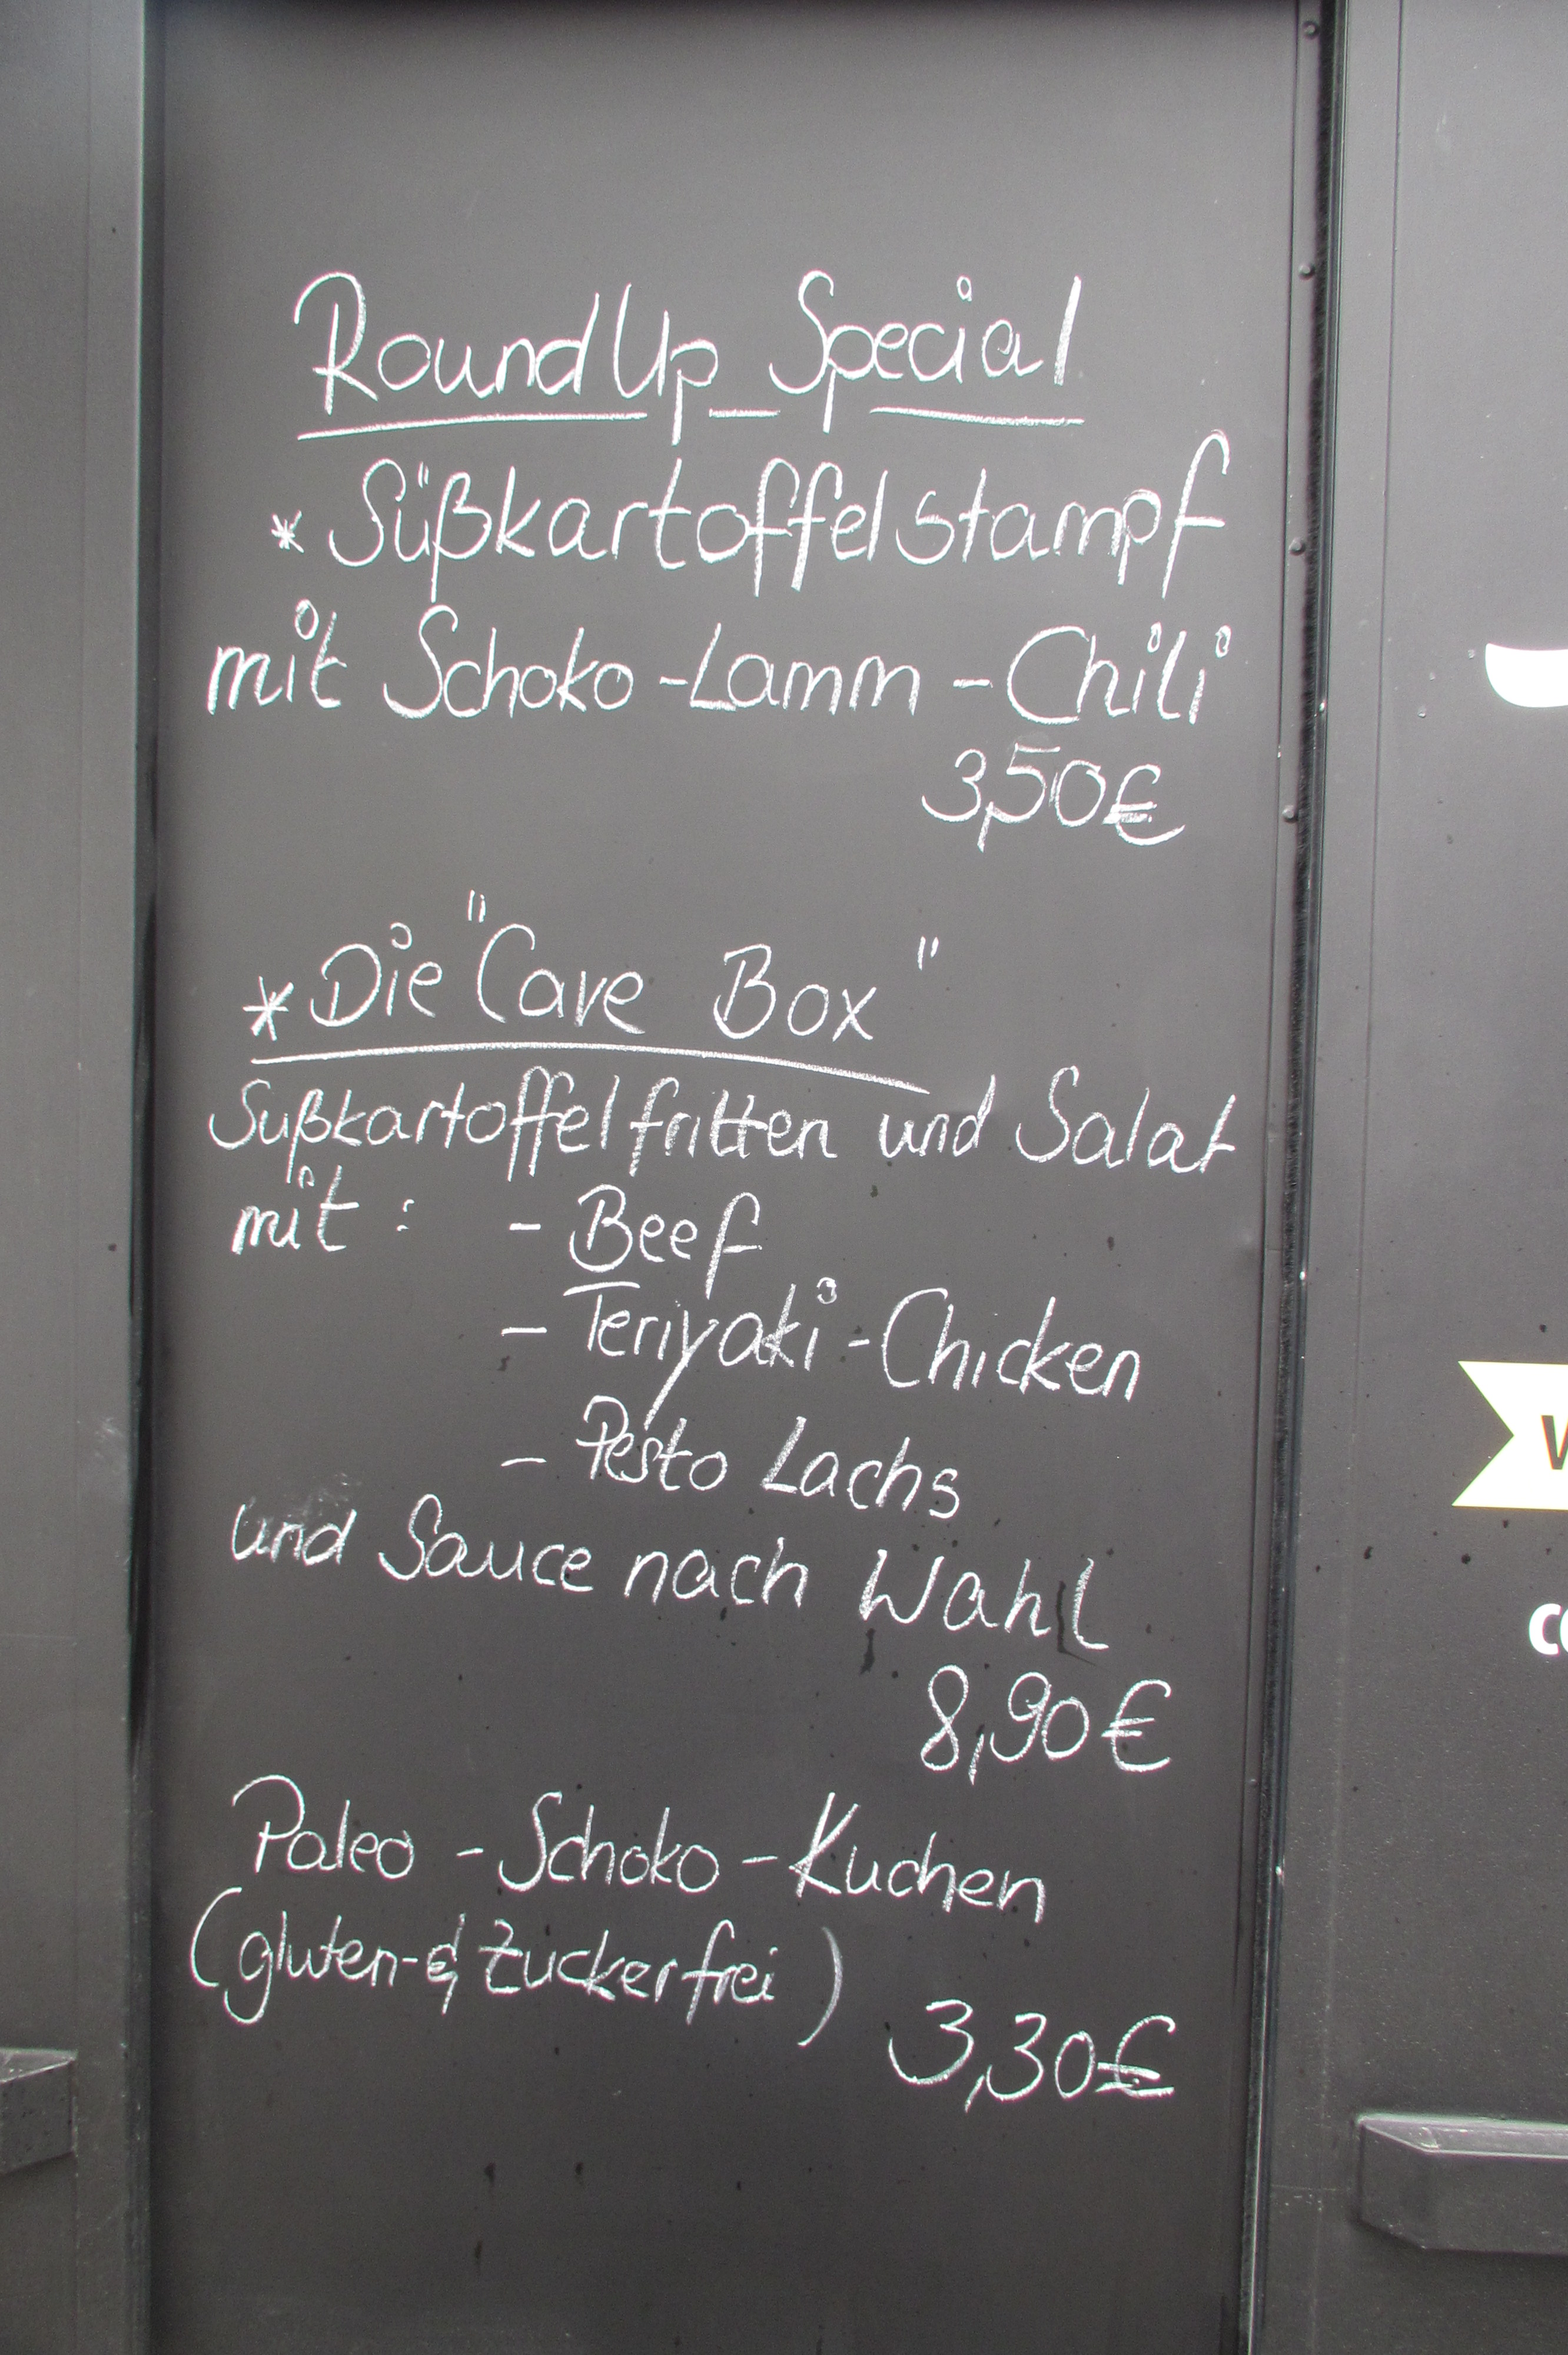 RoundUp Special
* Süßkartoffelstampf
mit Schoko-Lamm-Chili
3,50€
* Die "Cave Box"
Sußkartoffelfritten und Salat
mit: - Beef
- Teriyaki-Chicken
- Pesto Lachs
und Sauce nach Wahl
8,90€
Paleo-Schoko-Kuchen
(gluten-& zuckerfrei)
3,30€